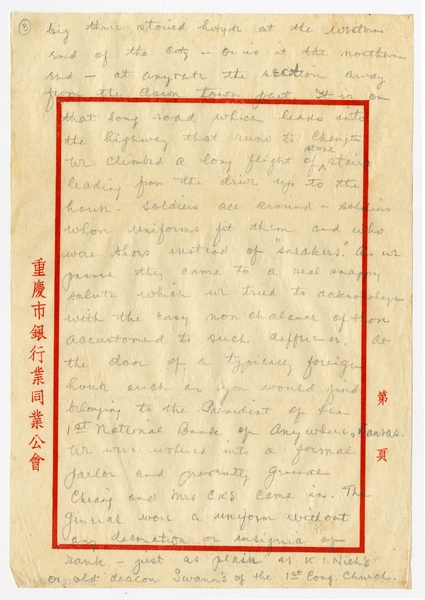 3
big three storied house at the western
end of the city – or is it the northern
end – at anyrate the section away
from the down town part. It is on
that long road which leads into
the highway that runs to Chengtu
We climbed a long flight of stone stairs
leading from the drive up to the
house – soldiers all around – soldiers
whose uniforms fit them and who
wore shoes instead of "sneakers". As we
passed they came to a real snappy
salute which we tried to acknowledge
with the easy non chalance of those
accustomed to such deference. At
the door of a typically foreign
house such as you would find
belonging to the President of the
1st National Bank of Anywhere, Kansas.
We were ushered into a formal
parlor and presently General
Chiang and Mrs CKS came in. The
general wore a uniform without
any decoration or insignia of
rank – just as plain as K.
or old deacon Swann's of the 1st Cong. Church.
重慶市銀行業同業公會
第 頁